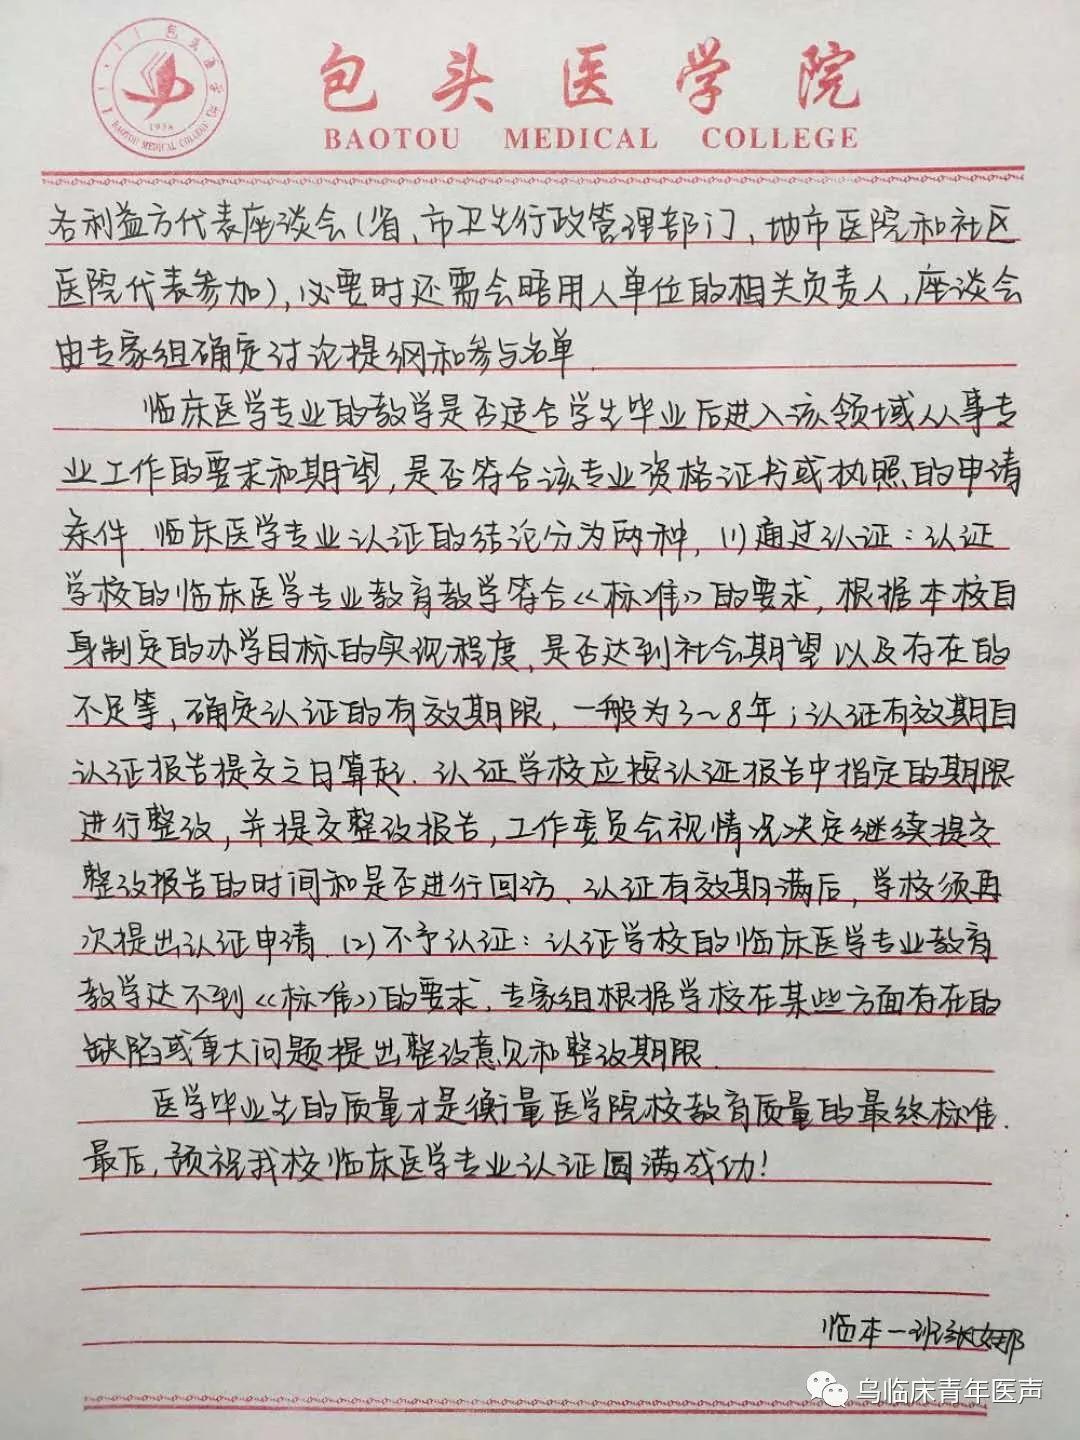 包头医学院
BAOTOU MEDICAL COLLEGE
包头医学院
1958
BAOTOU MEDICAL COLLEGE
各利益方代表座谈会(省、市卫生行政管理部门,地市医院和社区
医院代表参加),必要时还需会晤用人单位的相关负责人,座谈会
由专家组确定讨论提纲和参与名单.
临床医学专业的教学是否适合学生毕业后进入该领域或从事专
业工作的要求和期望,是否符合该专业资格证书或执照的申请
条件.临床医学专业认证的结论分为两种,(1)通过认证:认证
学校的临床医学专业教育教学符合《标准》的要求,根据本校自
身制定的办学目标的实现程度,是否达到社会期望以及存在的
不足等,确定认证的有效期限,一般为3~8年;认证有效期自
认证报告提交之日算起.认证学校应按认证报告中指定的期限
进行整改,并提交整改报告,工作委员会视情况决定继续提交
整改报告的时间和是否进行回访、认证有效期满后,学校须再
次提出认证申请.(2)不予认证:认证学校的临床医学专业教育
教学达不到《标准》的要求,专家组根据学校在某些方面存在的
缺陷或重大问题提出整改意见和整改期限.
医学毕业生的质量才是衡量医学院校教育质量的最终标准.
最后,预祝我校临床医学专业认证圆满成功!
临本一班张女娜
乌临床青年医声